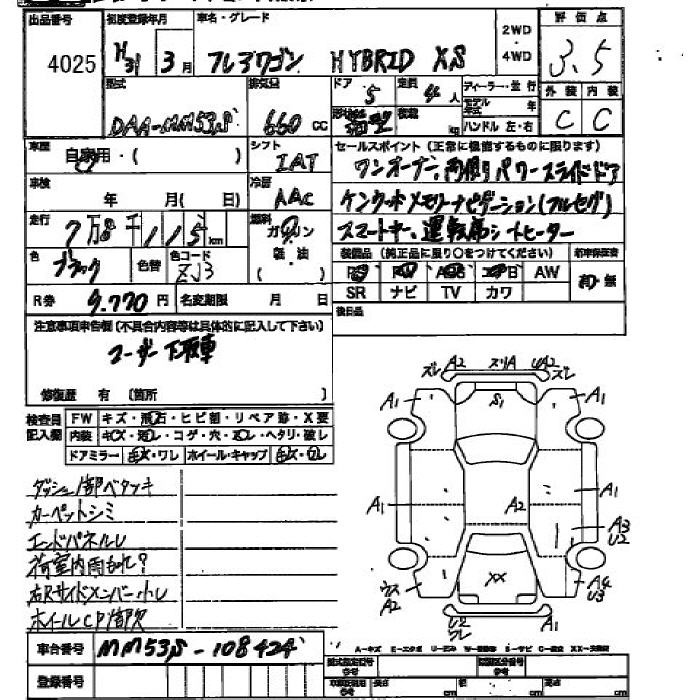 出品番号 初度登録年月 車名・グレード 2WD 評価点
4025 H31 3月 フレアワゴン HYBRID XS 4WD 3.5
型式 排気量 ドア 定員 ディーラー・並行 外装 内装
DAA-MM53S 660cc 5 4人 モデル年式 年 C C
形状 積載 kg ハンドル 左・右
車歴 自家用・( ) シフト IAT セールスポイント(正常に機能するものに限ります)
ワンオーナー、両側パワースライドドア
車検 年 月(日) 冷房 AAC ケンウッドメモリーナビゲーション(フルセグ)
走行 7万8千115km 燃料 ガソリン 軽・油 ( ) スマートキー、運転席シートヒーター
色 ブラック 色替 色コード ZJ3 装備品 (純正品に限り○をつけてください) 新車保証書
AW 有・無
R券 9.770円 名変期限 月 日 SR ナビ TV カワ
注意事項申告欄(不具合内容等は具体的に記入して下さい) 後日品
ユーザー下取車
修復歴 有 〔箇所 〕
検査員記入欄 FW キズ・飛石・ヒビ割・リペア跡・X要
内装 キズ・汚レ・コゲ・穴・ヌレ・ヘタリ・破レ
ドアミラー キズ・ワレ ホイール・キャップ キズ・ワレ
ダッシュ1部ベタツキ
カーペットシミ
エンドパネルU
荷室内雨もれ?
右Rサイドメンバー小U
ホイールCP1部欠
ズレ A2 スリA UA2 ズレ
A1 S1 A1
A1 A2 A1
A3
U2
ウス A2 XX A4
U3
U2 ワレ A1
車台番号 MM53S-108424
A-キズ E-エクボ U-凹ミ W-補修跡 S-サビ C-腐食 XX-交換済
登録番号 型式指定番号 類別区分番号
参考 長さ cm 幅 cm 高さ cm